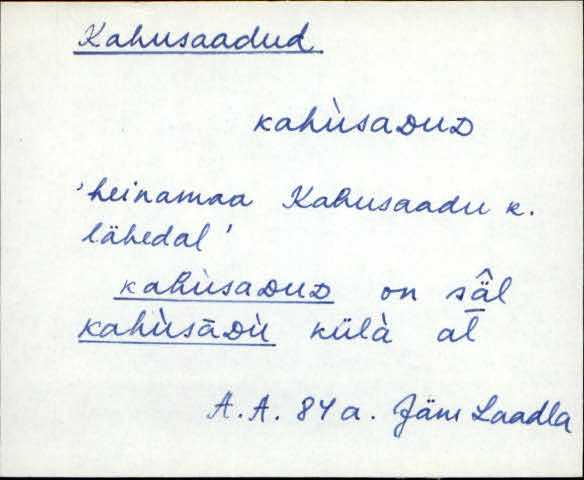 Kahusaadud
kahùsaDuD
'heinamaa Kahusaadu k.
lähedal'
kahùsaDuD on sä̂l
kahùsāDù külà al̄
A.A. 84 a. Jäm Laadla